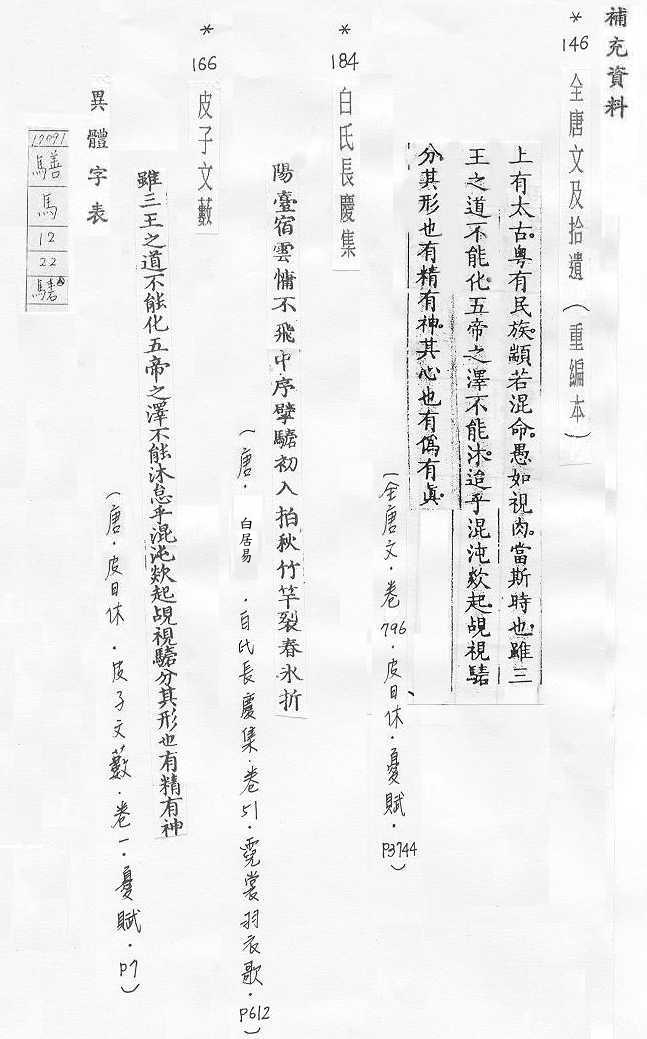 補充資料
*
146
全唐文及拾遺(重編本)
上有太古。粤有民族。顓若混命。愚如視肉。當斯時也。雖三
王之道不能化五帝之澤不能沐。迨乎混沌欻起。覘視騞
分其形也有精有神。其心也有僞有眞。
(全唐文·卷796·皮日休、憂賦·P3744)
*
184
白氏長慶集
陽臺宿雲慵不飛中序擘騞初入拍秋竹竿裂春氷折
(唐·白居易·白氏長慶集·卷51·霓裳羽衣歌·P612)
*
166
皮子文藪
雖三王之道不能化五帝之澤不能沐怠乎混沌欻起覘視騞分其形也有精有神
(唐·皮日休·皮子文藪·卷一·憂賦·P7)
異體字表
馬
12
22